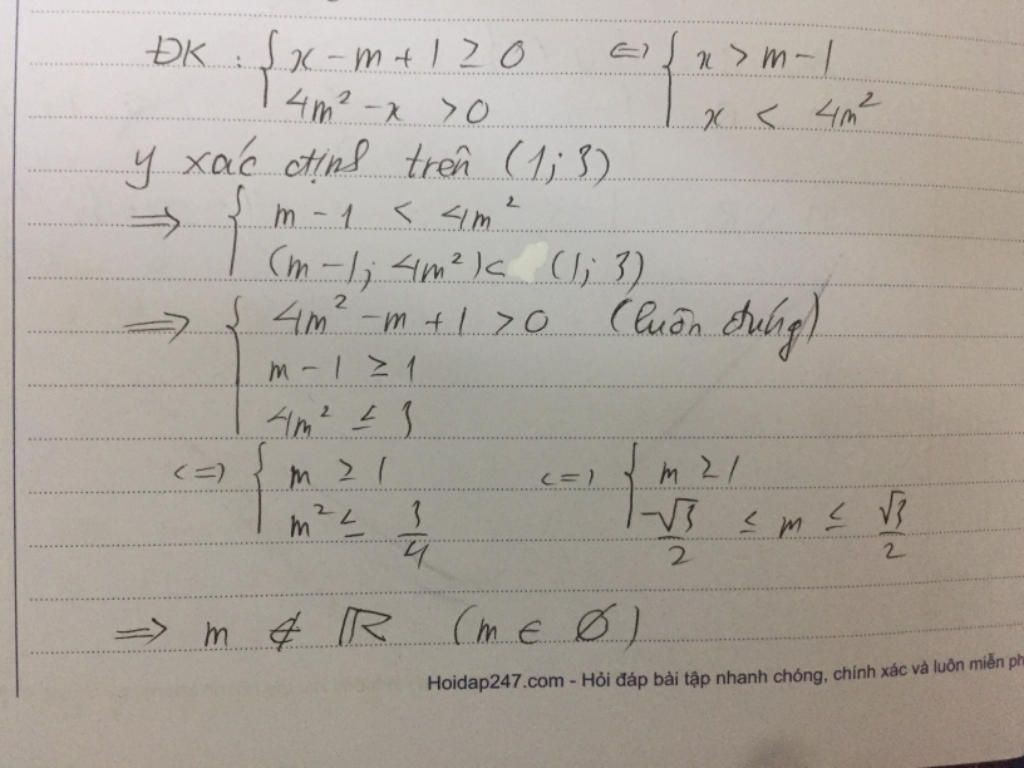 ĐK : { x - m + 1 ≥ 0 <=> { x > m - 1
4m² - x > 0 x < 4m²
y xác định trên (1; 3)
=> { m - 1 < 4m²
(m - 1; 4m²) < (1; 3)
=> { 4m² - m + 1 > 0 (luôn đúng)
m - 1 ≥ 1
4m² ≤ 3
<=> { m ≥ 1 <=> { m ≥ 1
m² ≤ 3/4 -√3/2 ≤ m ≤ √3/2
=> m ∉ ℝ (m ∈ ∅)
Hoidap247.com - Hỏi đáp bài tập nhanh chóng, chính xác và luôn miễn ph